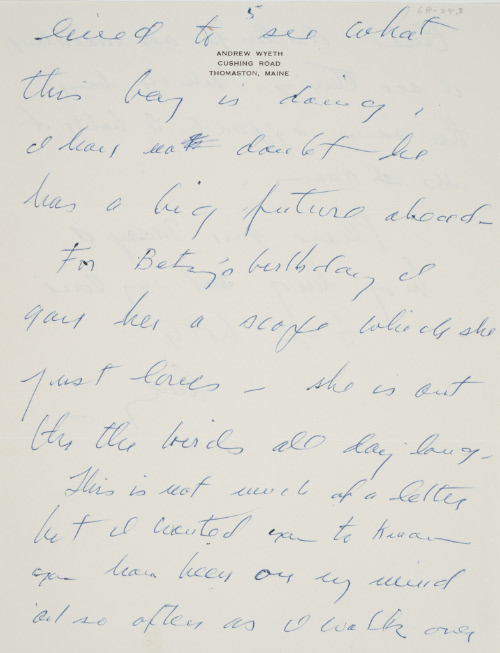 5
68-243
lived to see what
ANDREW WYETH
CUSHING ROAD
THOMASTON, MAINE
this boy is doing,
I have no doubt he
has a big future ahead–
For Betsy's birthday I
gave her a scope which she
just loves – she is out
the birds all day long.
This is not much of a letter
but I wanted you to know
you have been on my mind
so often as I walk over